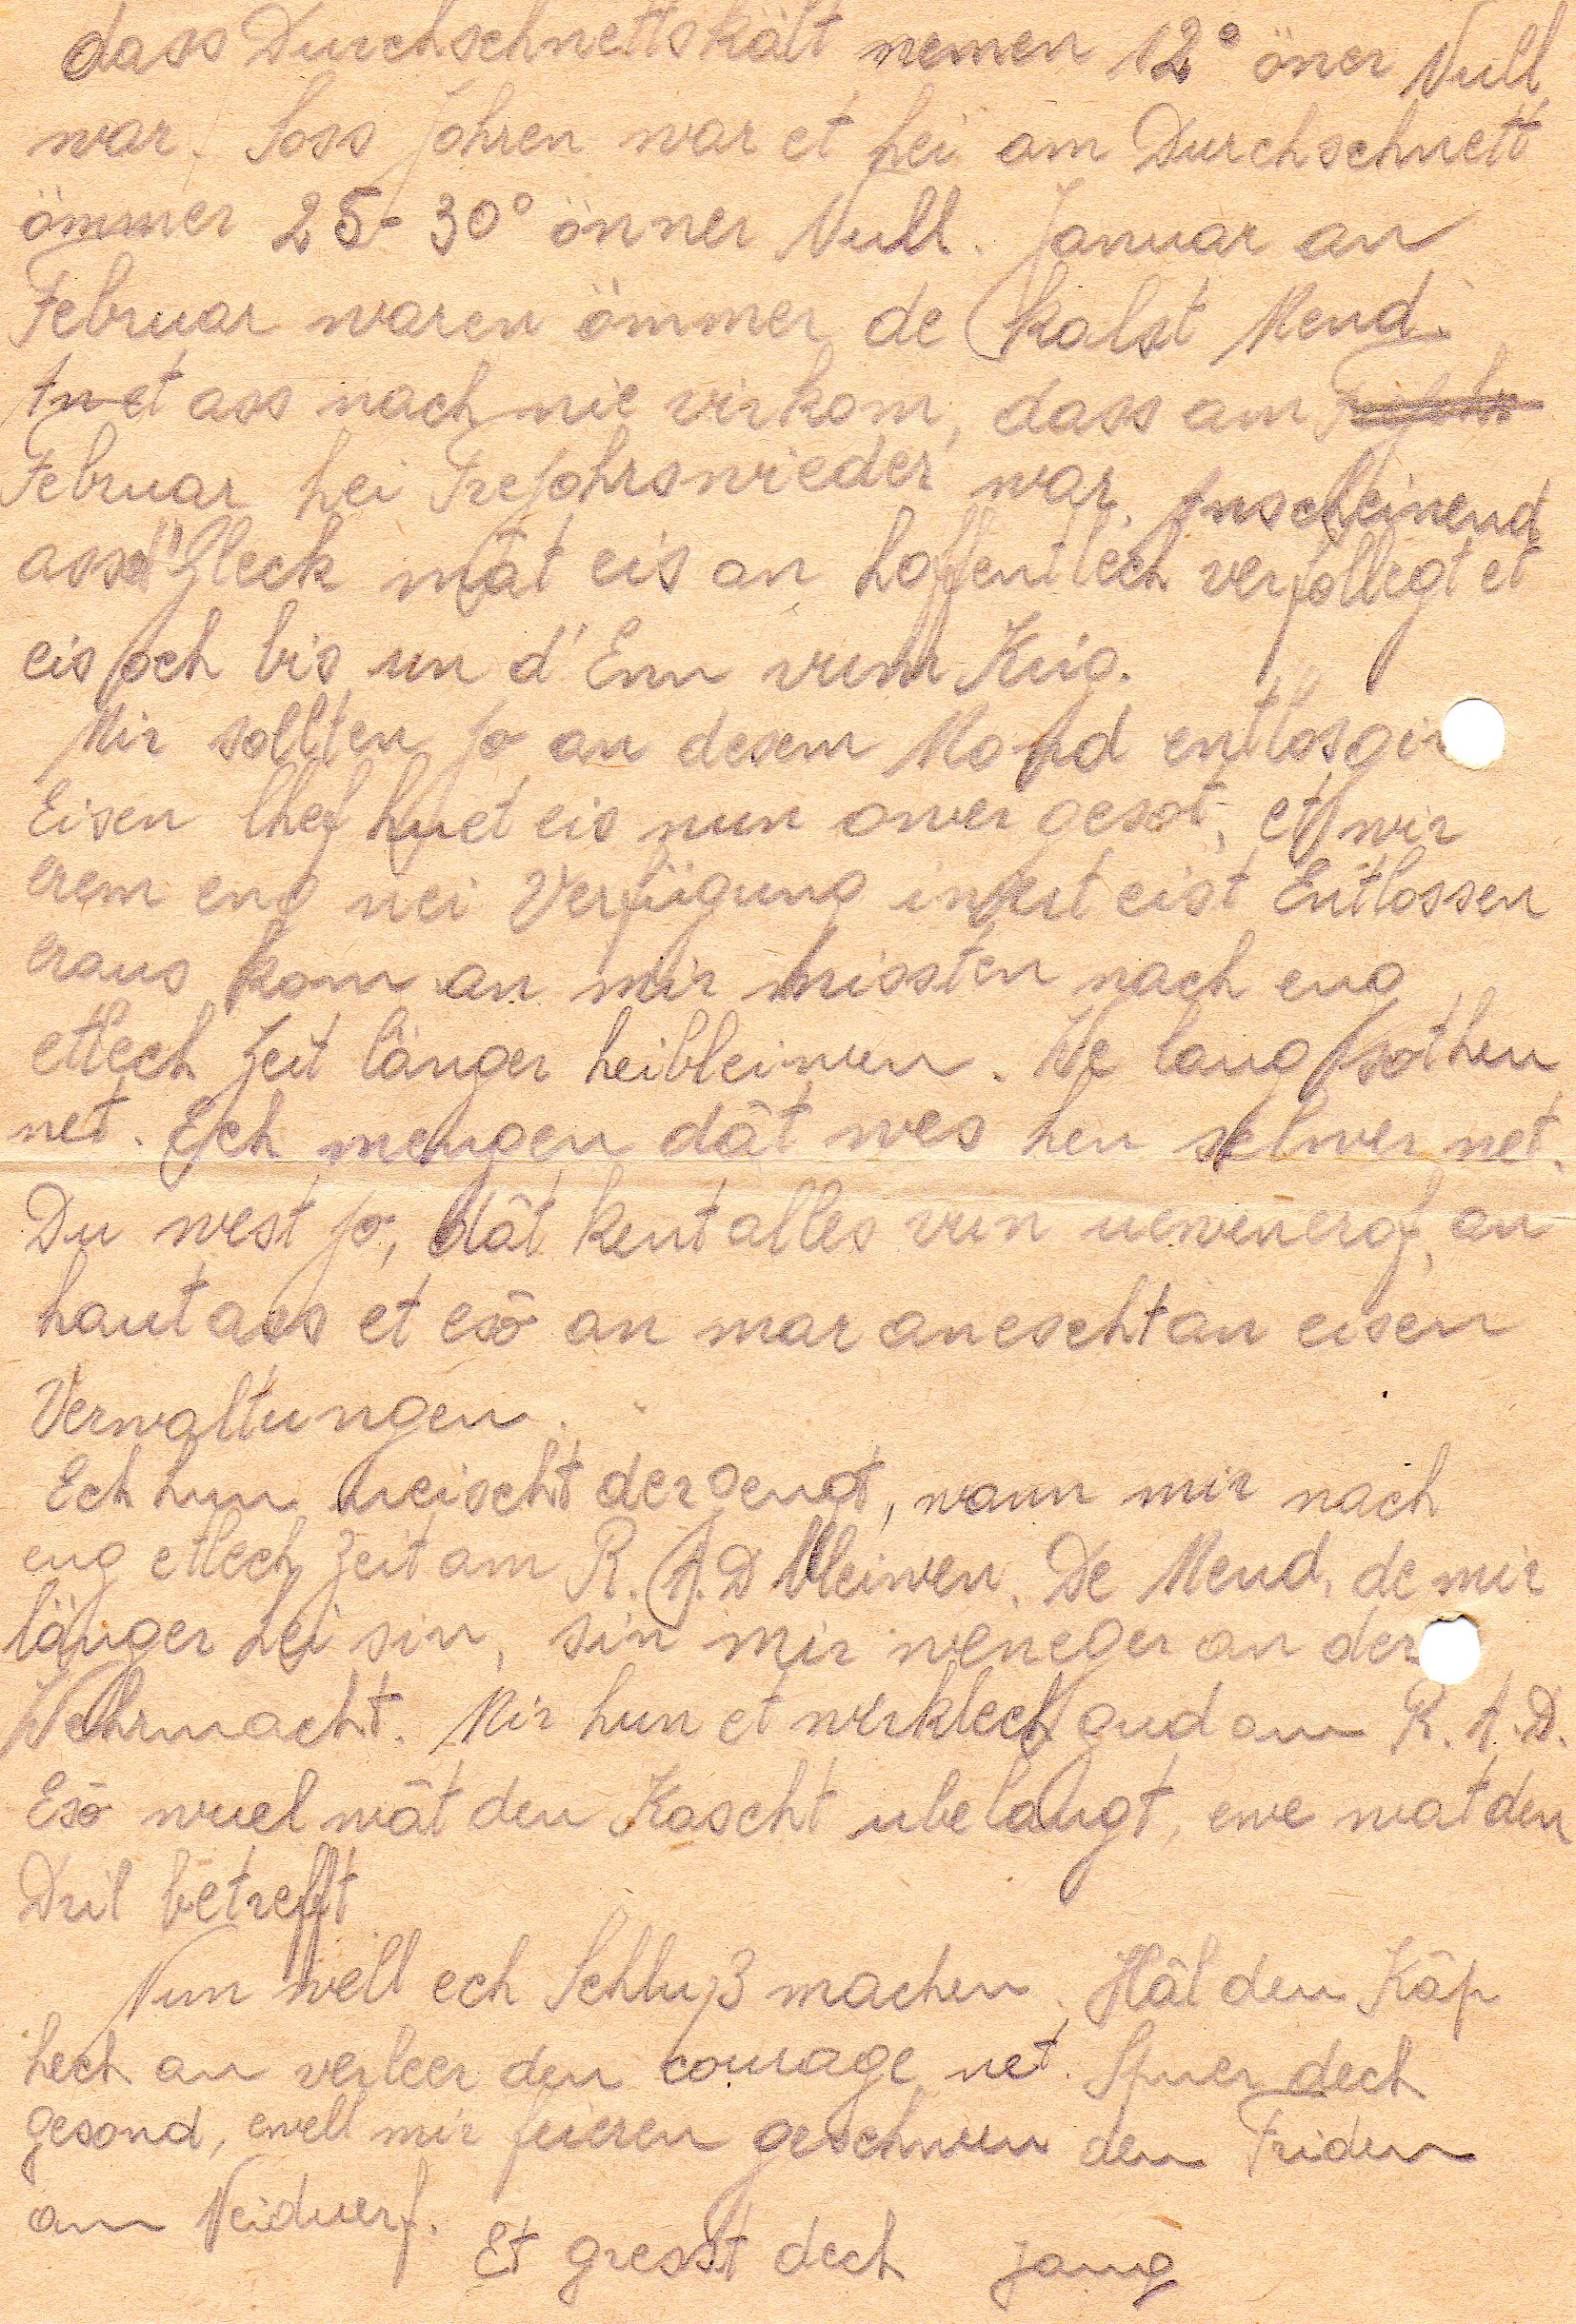 dass Durchschnettskält nemen 12° öner Null
war. Soss Johren war et hei am Durchschnett
ömmer 25-30° önner Null. Januar an
Februar waren ömmer de kalst Mend.
An et ass nach nie virkom, dass am
Februar hei Frejohrswieder war. Anscheinend
ass d'Gleck mat eis an hoffentlech verfollegt et
eis och bis un d'Enn vum Krig.
Mir sollten jo an desem Mond entlos gin
Eisen Chef huet eis nun ower gesot, et wir
erem eng nei Verfügung iwert eist Entlossen
eraus kom an mir missten nach eng
etlech Zeit länger heibleiwen. We lang sot hen
net. Ech mengen dât wes hen selwer net.
Du west jo, dât kent alles vun uewenerof, an
haut ass et esō an mar anescht an eisen
Verwaltungen.
Ech hun neischt dergengt, wann mir nach
eng etlech Zeit am R.A.D bleiwen. De Mend, de mir
länger hei sin, sin mir weneger an der
Wehrmacht. Mir hun et wirklech gud am R.A.D.
Esō wuel wât den Kascht ubelangt, ewe wat den
Dril betrefft
Nun well ech Schluß machen. Hâl den Kâp
hech an verleer den courage net. Spuer dech
gesond, ewell mir feieren geschwen den Friden
am Neiduerf.
Et gresst dech Jang